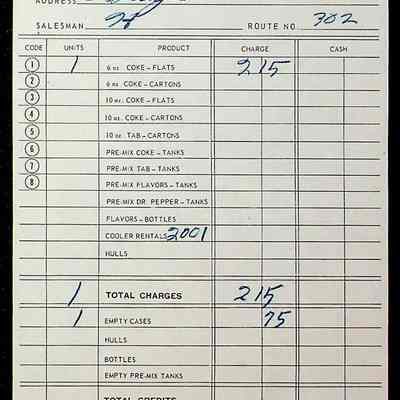 ADDRESS
SALESMAN ROUTE NO. 302
CODE UNITS PRODUCT CHARGE CASH
1 1 6 oz. COKE-FLATS 215
2 6 oz. COKE-CARTONS
3 10 oz. COKE-FLATS
4 10 oz. COKE-CARTONS
5 10 oz. TAB-CARTONS
6 PRE-MIX COKE-TANKS
7 PRE-MIX TAB-TANKS
8 PRE-MIX FLAVORS-TANKS
PRE-MIX DR. PEPPER-TANKS
FLAVORS-BOTTLES
COOLER RENTALS 2001
HULLS
1 TOTAL CHARGES 215
1 EMPTY CASES 75
HULLS
BOTTLES
EMPTY PRE-MIX TANKS
TOTAL CREDITS